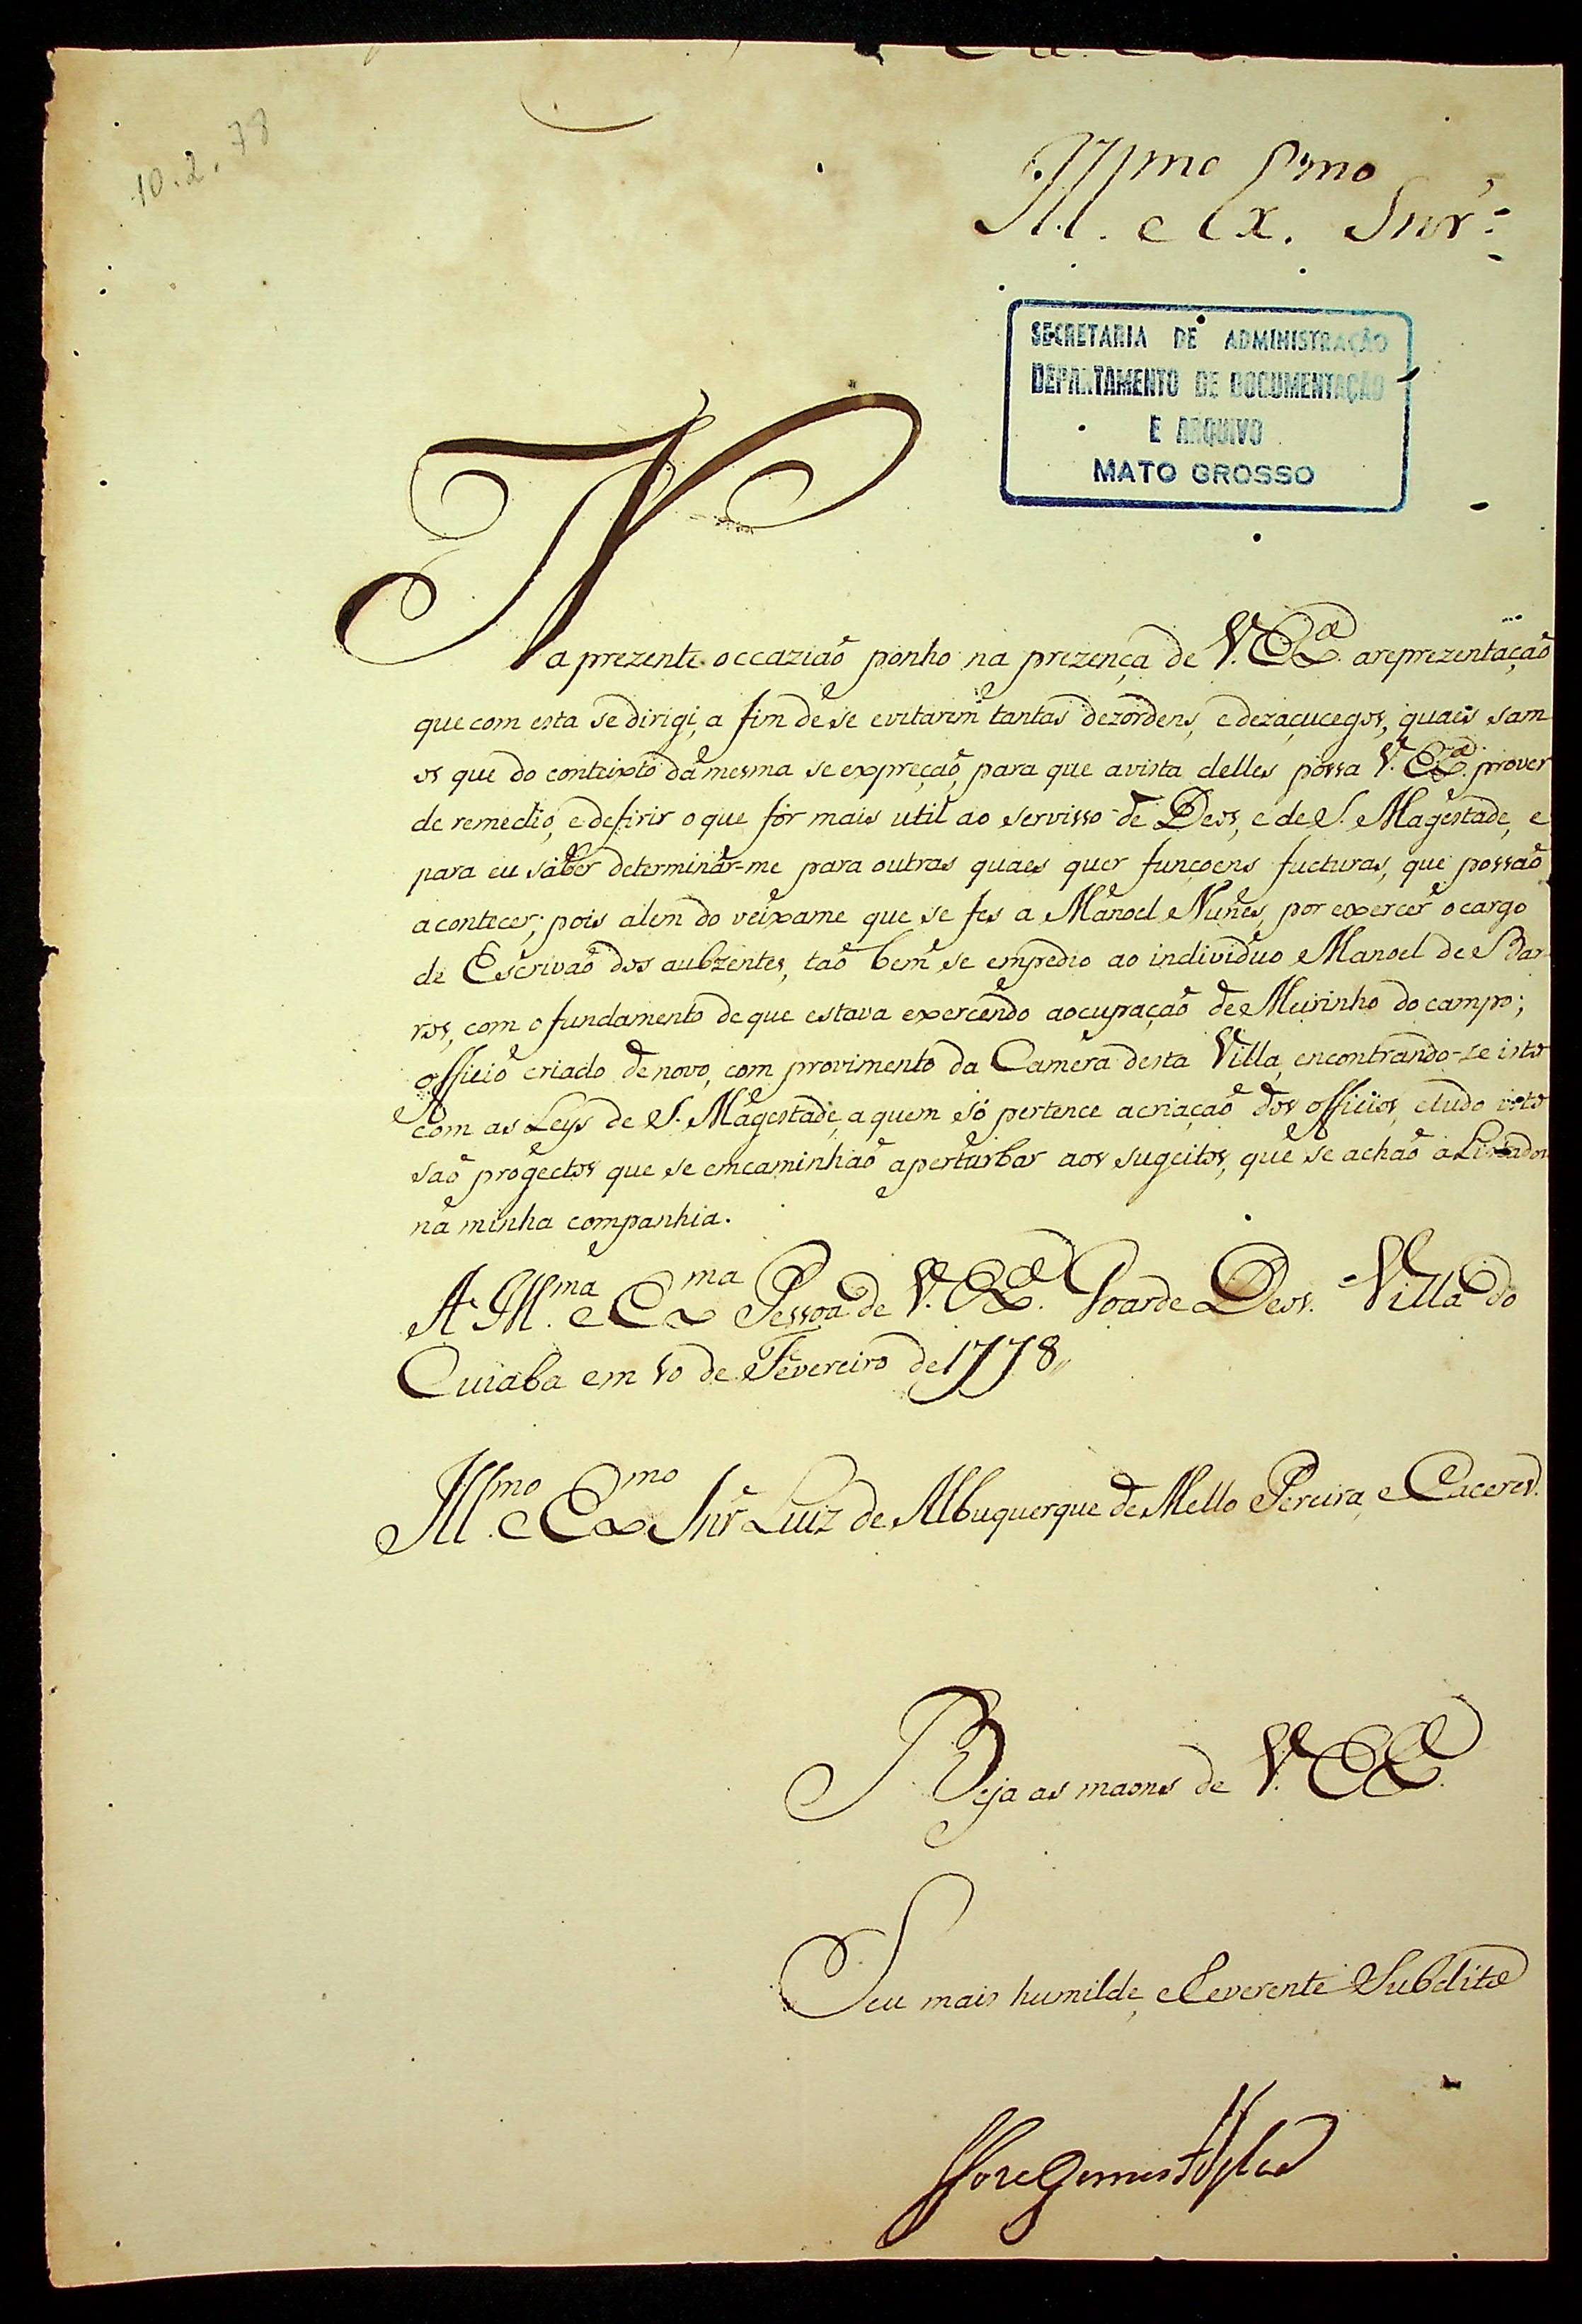 10.2.78
Ill.mo e Ex.mo Snr.
SECRETARIA DE ADMINISTRAÇÃO
DEPARTAMENTO DE DOCUMENTAÇÃO
E ARQUIVO
MATO GROSSO
Na prezente occaziaõ ponho na prezença de V. Ex.ª areprezentaçaõ
que com esta se dirigi, a fim de se evitarem tantas dezordens, e dezaçucegos, quaes sam
os que do conteixto da mesma se expreçaõ, para que avista delles possa V. Ex.ª prover
de remedio, e defirir o que for mais util ao servisso de Deos, e de S. Magestade, e
para eu saber determinar-me para outras quaes quer funçoens fucturas, que possaõ
acontecer; pois alem do veixame que se fes a Manoel Nunes, por exercer o cargo
de Escrivaõ dos aubzentes, taõ bem se empedio ao individuo Manoel de Bar-
ros, com o fundamento de que estava exercendo aocupaçaõ de Meirinho do campo;
officio criado de novo, com provimento da Camera desta Villa, encontrando-se isto
com as Leys de S. Magestade, a quem só pertence acriaçaõ dos officios, etudo isto
saõ progectos que se emcaminhaõ aperturbar aos sugeitos, que se achaõ aListados
na minha companhia.
A Ill.ma e Ex.ma Pessoa de V. Ex.ª Goarde Deos. Villa do
Cuiaba em 10 de Fevereiro de 1778
Ill.mo e Ex.mo Snr Luiz de Albuquerque de Mello Pereira, e Caceres.
Beja as maons de V. Ex.ª
Seu mais humilde, e Reverente Subdito
Jose Gomes